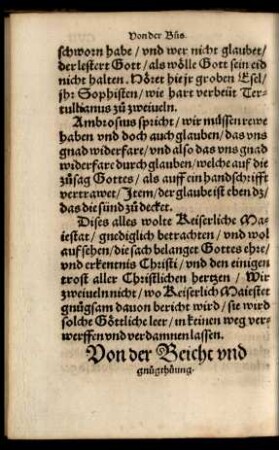 Von der Büs.
schworn habe / vnd wer nicht glaubet /
der lestert Gott / als wölle Gott sein eid
nicht halten. Höret hie jr groben Esel /
jhr Sophisten / wie hart verbeüt Ter-
tullianus zů zweiueln.
Ambrosius spricht / wir müssen rewe
haben vnd doch auch glauben / das vns
gnad widerfare / vnd also das vns gnad
widerfare durch glauben / welche auff die
zůsag Gottes / als auff ein handschrifft
vertrawet / Item / der glaube ist eben dz /
das die sünd zů decket.
Dises alles wolte Keiserliche Ma-
iestat / gnediglich betrachten / vnd wol
auf sehen / die sach belanget Gottes ehre /
vnd erkentnis Christi / vnd den einigen
trost aller Christlichen hertzen / Wir
zweiueln nicht / wo Keiserlich Maiestet
gnůgsam dauon bericht wird / sie wird
solche Göttliche leer / in keinen weg ver-
werffen vnd verdamnen lassen.
Von der Beicht vnd
gnůgthůung.